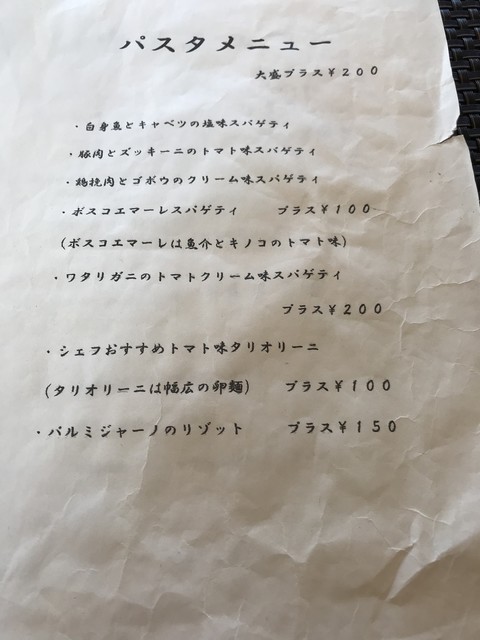 パスタメニュー
大盛プラス￥２００
・白身魚とキャベツの塩味スパゲティ
・豚肉とズッキーニのトマト味スパゲティ
・鶏挽肉とゴボウのクリーム味スパゲティ
・ボスコエマーレスパゲティ　プラス￥１００
（ボスコエマーレは魚介とキノコのトマト味）
・ワタリガニのトマトクリーム味スパゲティ
プラス￥２００
・シェフおすすめトマト味タリオリーニ
（タリオリーニは幅広の卵麺）　プラス￥１００
・パルミジャーノのリゾット　プラス￥１５０